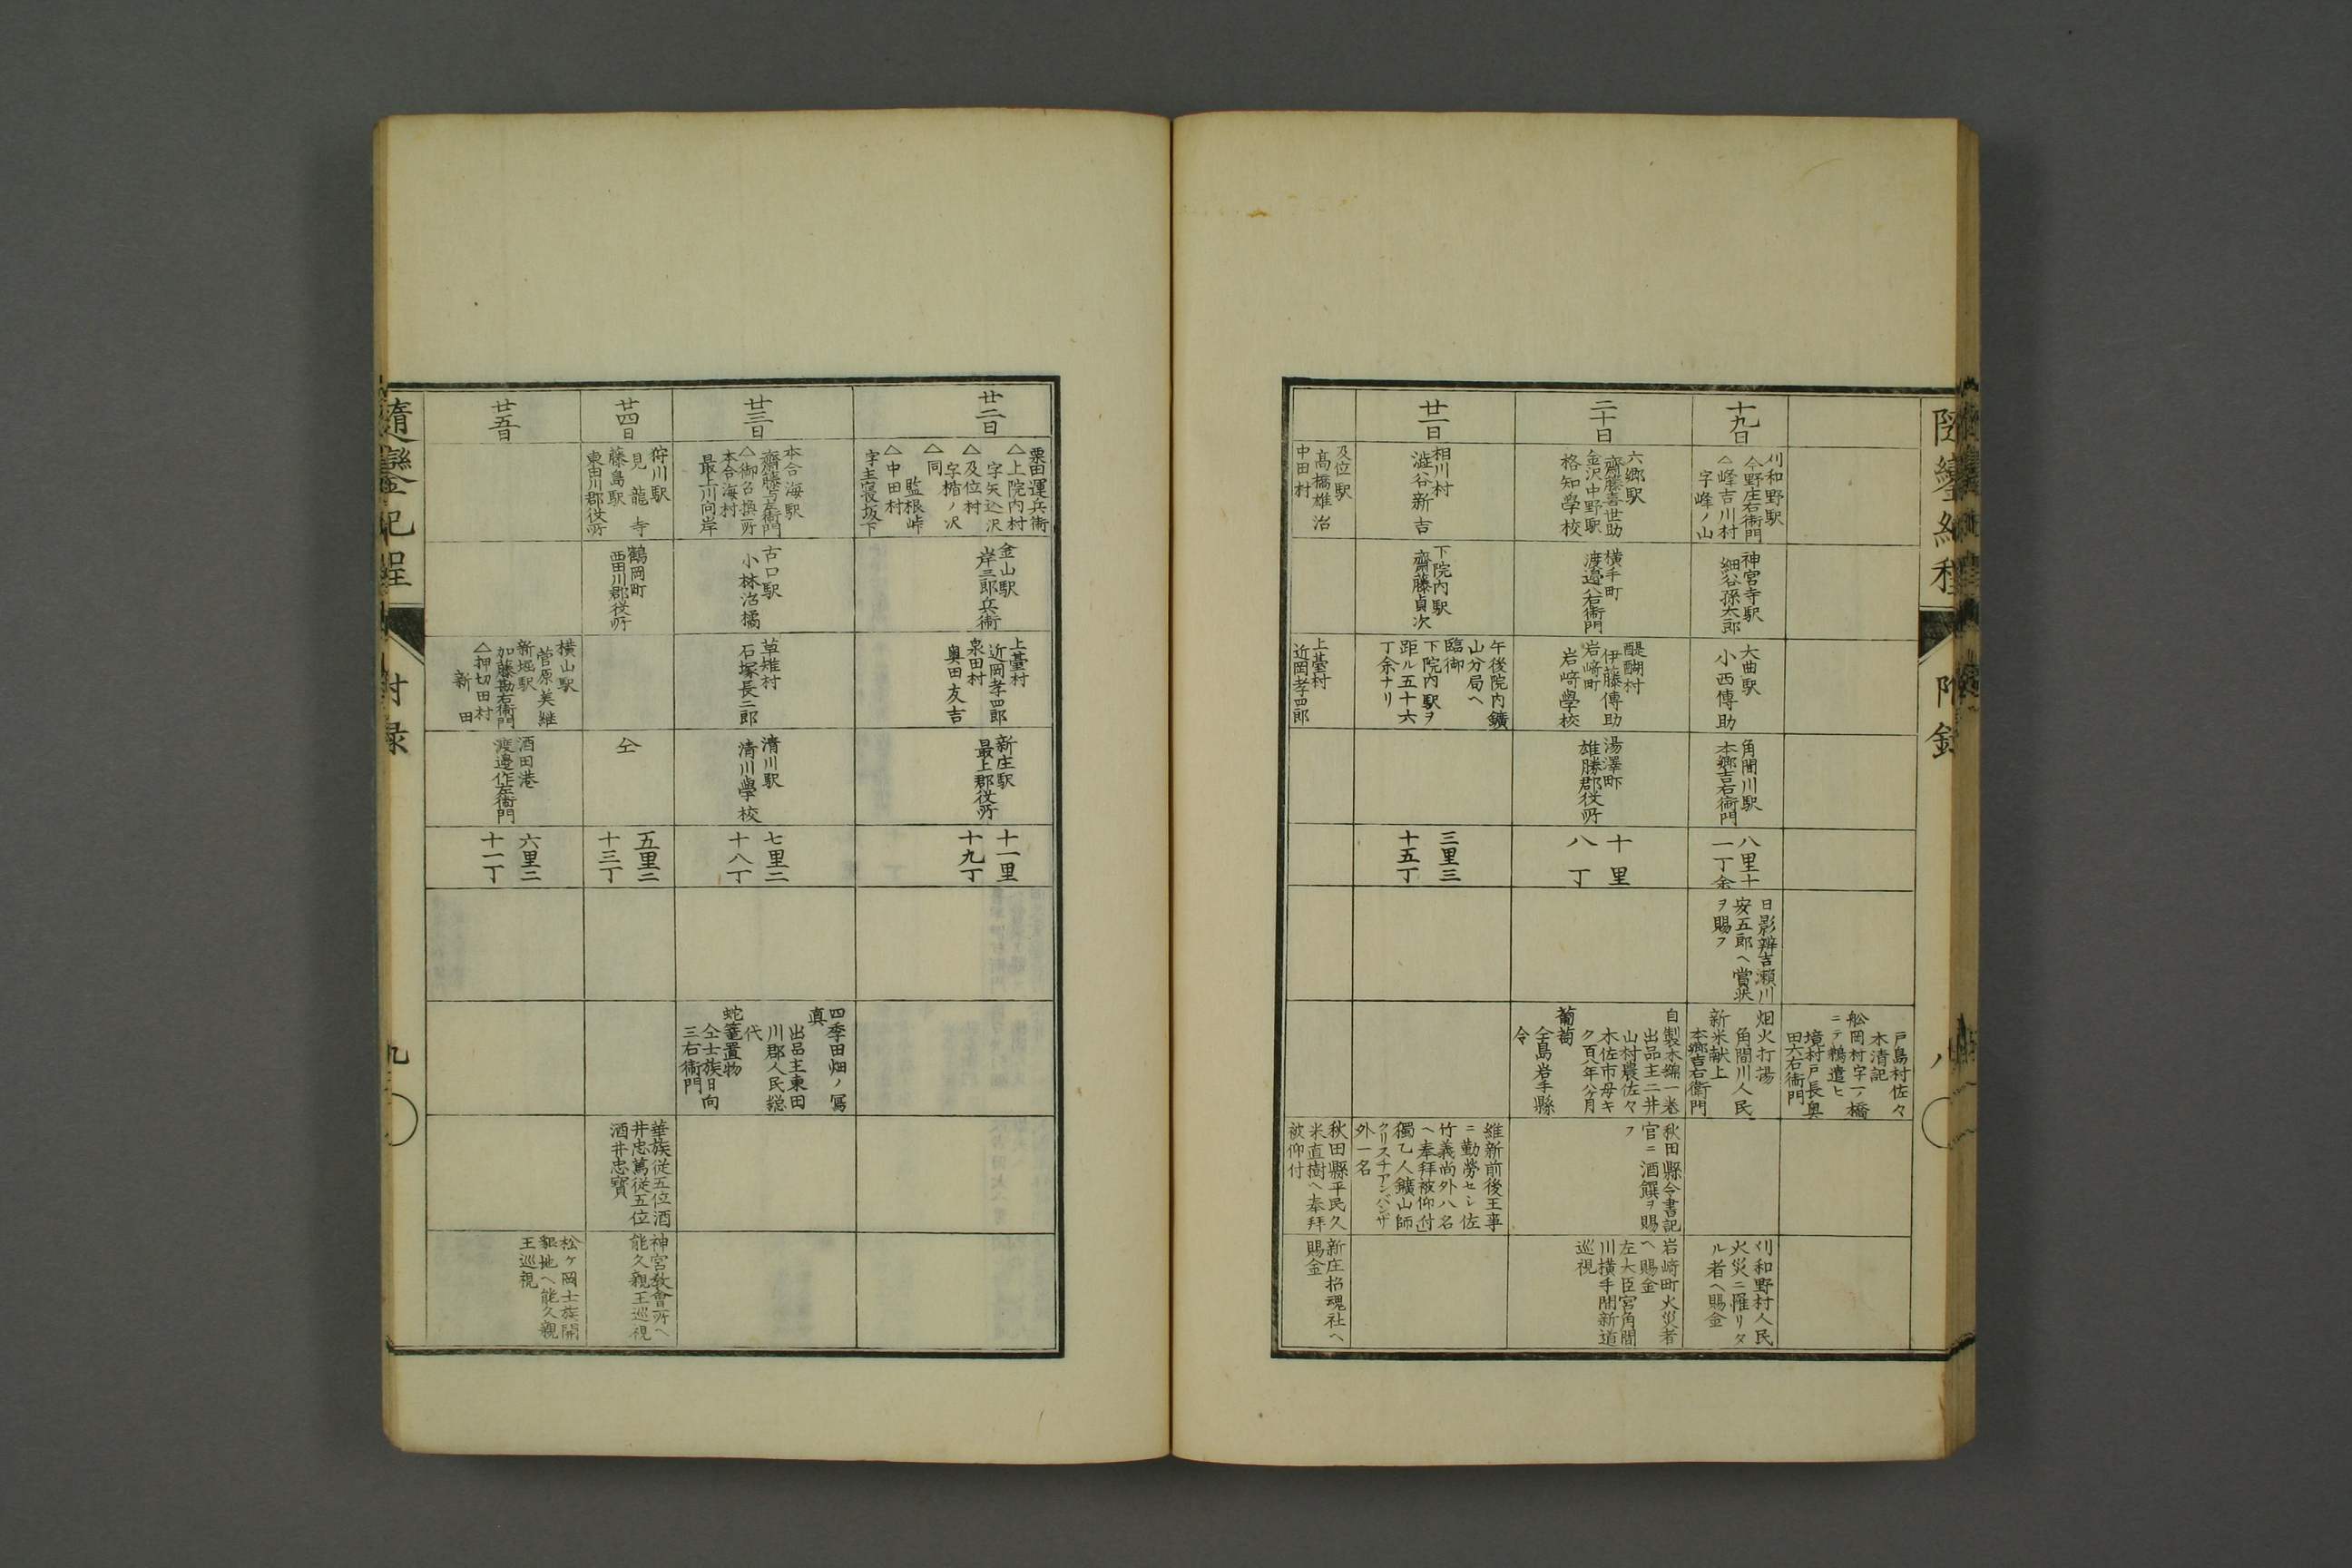 附録
八
戸島村佐々
木清記
舩岡村字一ノ橋
ニテ鵜遣ヒ
境村戸長奥
田六右衛門
十九日
刈和野駅
今野庄右衛門
△峰吉川村
字峰ノ山
神宮寺駅
細谷孫太郎
大曲駅
小西傳助
角間川駅
本郷吉右衛門
八里十
一丁余
日影辨吉瀬川
安五郎ヘ賞状
ヲ賜フ
烟火打揚
角間川人民
新米献上
本郷吉右衛門
刈和野村人民
火災ニ罹リタ
ル者ヘ賜金
二十日
六郷駅
齋藤喜世助
金沢中野駅
格知學校
横手町
渡邉谷右衛門
醍醐村
伊藤傳助
岩﨑町
岩﨑學校
湯澤町
雄勝郡役所
十里
八丁
自製木綿一巻
出品主二井
山村農佐々
木佐市母キ
ク百八年八ヶ月
葡萄
仝島岩手縣
令
秋田縣令書記
官ニ酒饌ヲ賜
フ
岩﨑町火災者
ヘ賜金
左大臣宮角間
川横手間新道
巡視
廿一日
相川村
澁谷新吉
下院内駅
齋藤貞次
午後院内鑛
山分局ヘ
臨御
下院内駅ヲ
距ル五十六
丁余ナリ
三里三
十五丁
維新前後王事
ニ勤勞セシ佐
竹義尚外八名
ヘ奉拜被仰付
獨乙人鑛山師
クリスチアンバンザ
外一名
及位駅
髙橋雄治
中田村
上䑓村
近岡孝四郎
秋田縣平民久
米直樹ヘ奉拜
被仰付
新庄招魂社ヘ
賜金
廿二日
栗田運兵衛
△上院内村
字矢込沢
△及位村
字楯ノ沢
△同
監根峠
△中田村
字主寝坂下
金山駅
岸三郎兵衛
上䑓村
近岡孝四郎
泉田村
奥田友吉
新庄駅
最上郡役所
十一里
十九丁
廿三日
本合海駅
齋藤与左衛門
△御召換所
本合海村
最上川向岸
古口駅
小林治橘
草薙村
石塚長二郎
清川駅
清川學校
七里二
十八丁
四季田畑ノ冩
真
出品主東田
川郡人民総
代
蛇篭置物
仝士族日向
三右衛門
廿四日
狩川駅
見龍寺
藤島駅
東田川郡役所
鶴岡町
西田川郡役所
仝
五里三
十三丁
華族従五位酒
井忠篤従五位
酒井忠寶
神宮教會所ヘ
能久親王巡視
廿五日
横山駅
菅原美維
新堀駅
加藤勘右衛門
△押切田村
新田
酒田港
渡邉作左衛門
六里三
十一丁
松ヶ岡士族開
墾地ヘ能久親
王巡視
隨鑾紀程
付録
九